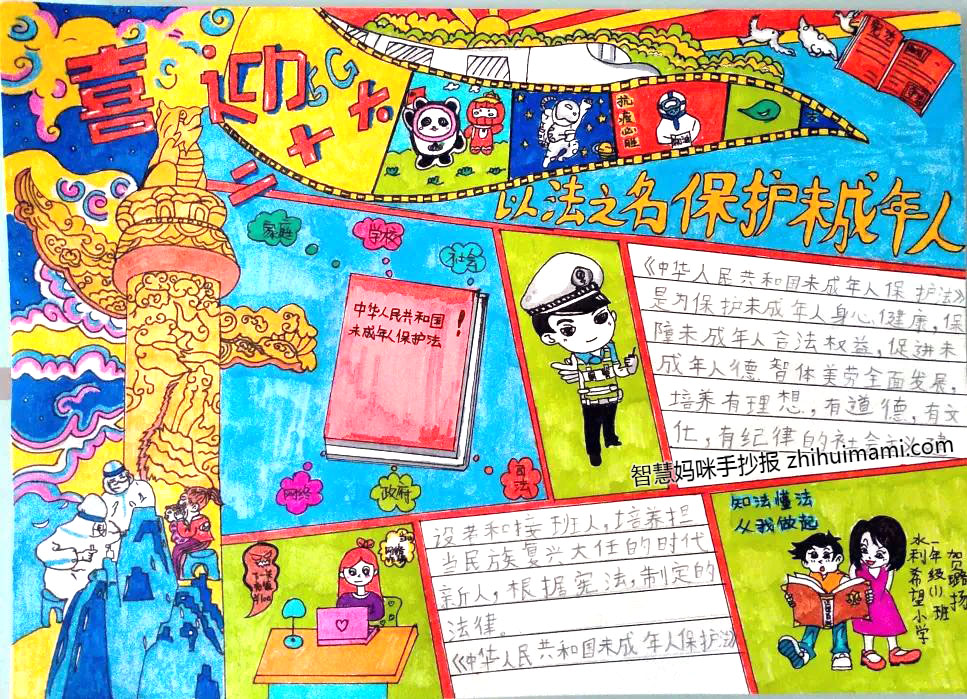 喜迎
二十大
抗疫必胜
宪法
以法之名 保护未成年人
家庭
学校
社会
中华人民共和国
未成年人保护法
网络
政府
司法
《中华人民共和国未成年人保护法》
是为保护未成年人身心健康,保
障未成年人合法权益,促进未
成年人德智体美劳全面发展,
培养有理想,有道德,有文
化,有纪律的社会主义建
智慧妈咪手抄报 zhihuimami.com
设者和接班人,培养担
当民族复兴大任的时代
新人,根据宪法,制定的
法律。
《中华人民共和国未成年人保护法》
知法懂法
从我做起
水利希望小学
一年级(1)班